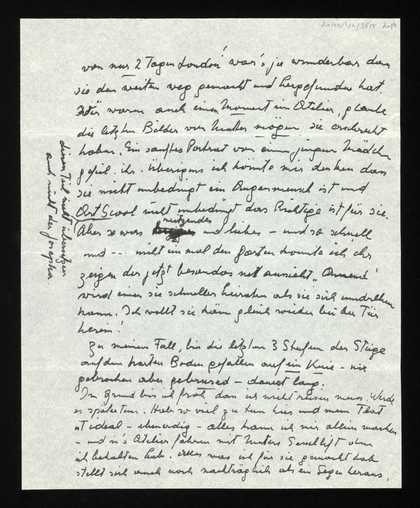 von nur 2 Tagen London' war's ja wunderbar dass
sie den weiten weg gemacht und hergefunden hat.
Wir waren auch einen Moment im Atelier, glaube
die letzten Bilder von Mutter mögen sie erschreckt
haben. Ein sanftes Portrait von einem jungen Mädchen
gefiel ihr. Übrigens ich könnte mir denken dass
sie nicht unbedingt ein Augenmensch ist und
Art School nicht unbedingt das Richtige ist für sie.
Aber so was reizendes
und liebes - und so schnell
und --- nicht einmal den Garten konnte ich ihr
zeigen der jetzt besonders nett aussieht.
wird einer sie schneller heiraten als sie sich umdrehen
kann. Ich wollt sie käm gleich wieder bei der Tür
herein!
Zu meinem Fall, bin die letzten 3 Stufen der Stiege
auf den harten Boden gefallen auf ein Knie - nix
gebrochen aber gebruised - dauert lang.
Im Grund bin ich froh, dass ich nicht reisen muss. Werde
es später tun. Hab so viel zu tun hier und mein
ist ideal - ebenerdig - alles kann ich mir allein machen
- und in's Atelier fahren mit Mutters
ich behalten hab. Alles was ich für sie gemacht hab
stellt sich auch noch nachträglich als ein Segen heraus.
diesen Teil nicht übersetzen
und nicht der